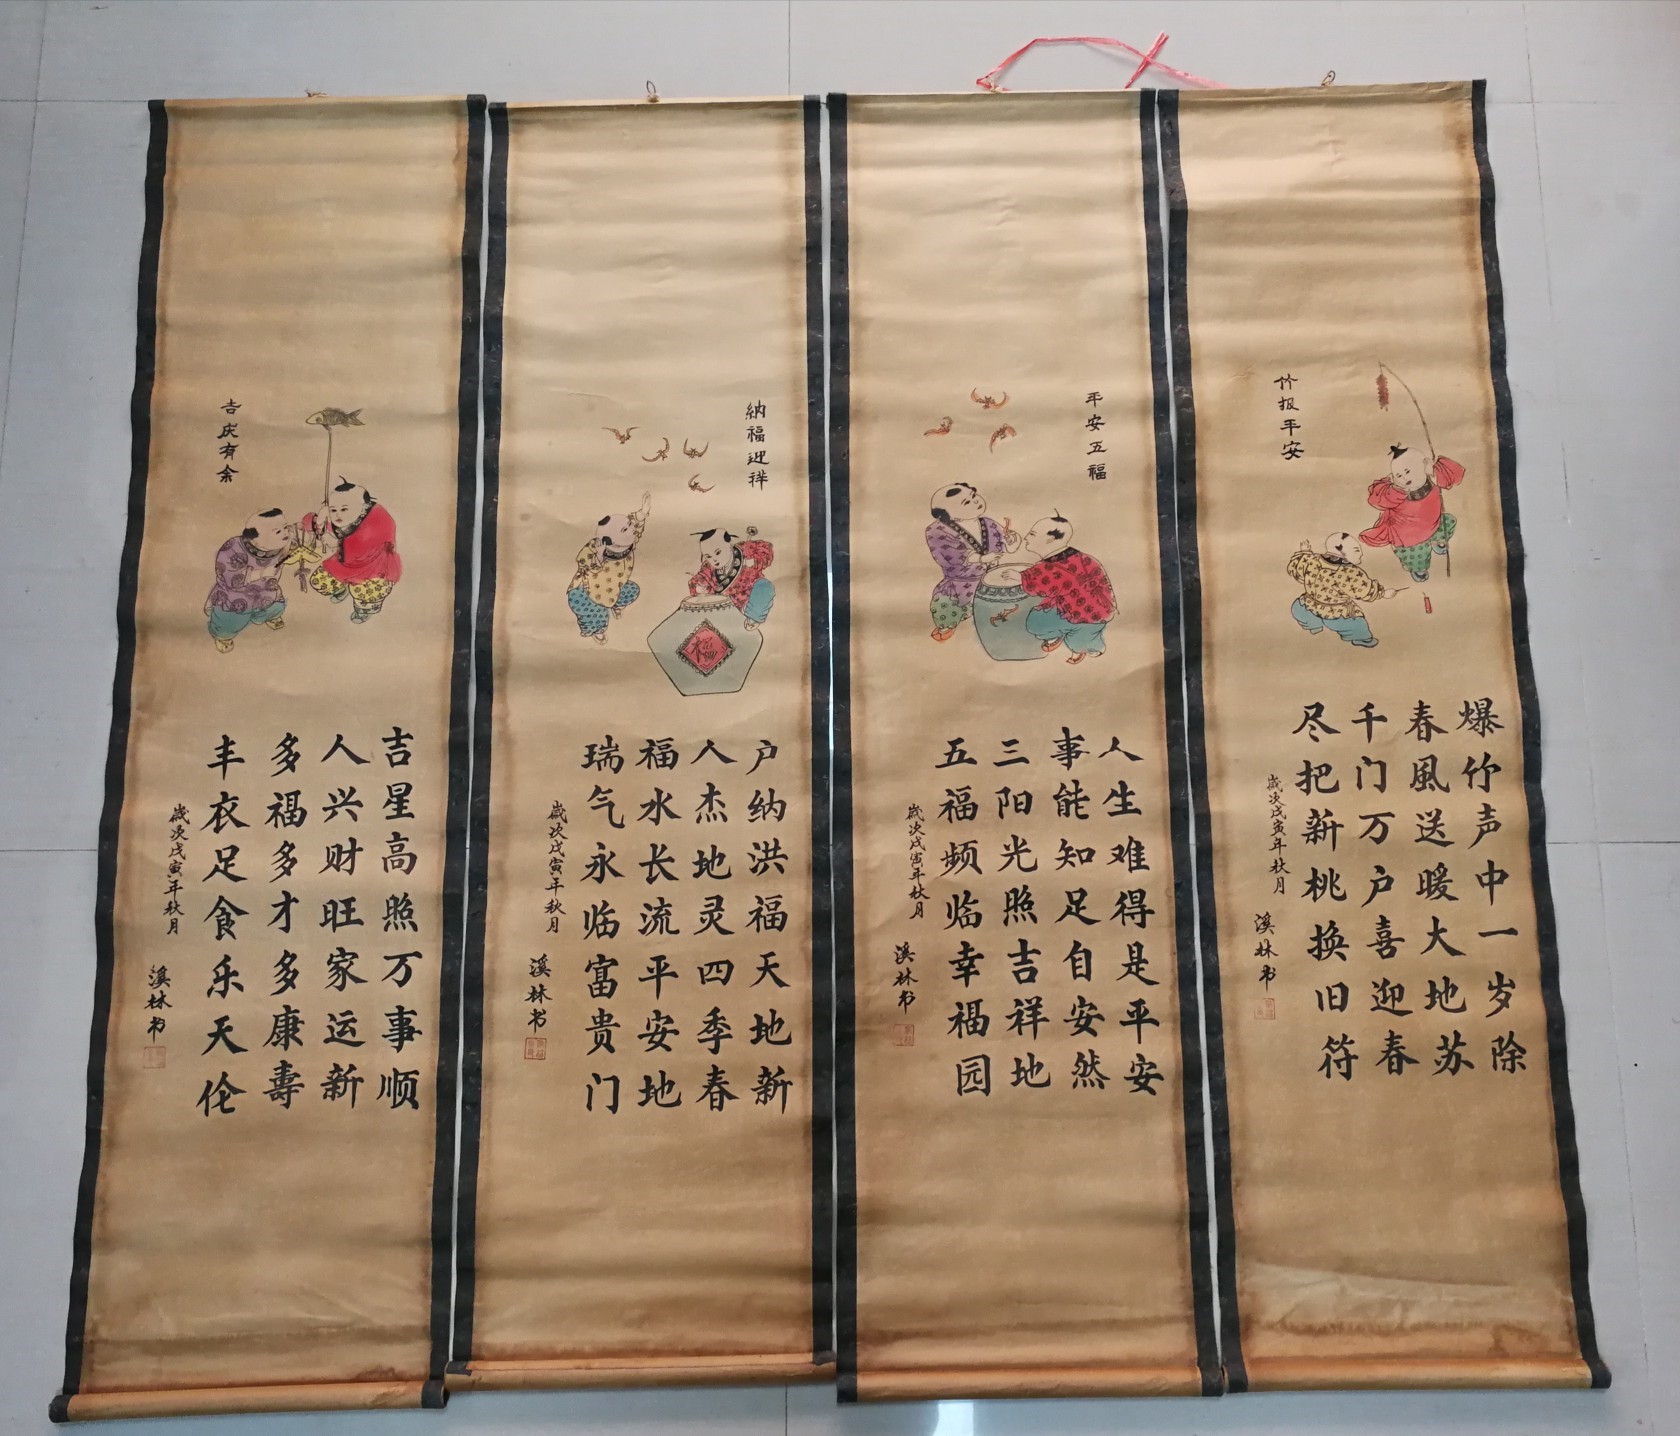 竹报平安
爆竹声中一岁除
春風送暖大地苏
千门万户喜迎春
尽把新桃换旧符
歲次戊寅年秋月
溪林书
平安五福
人生难得是平安
事能知足自安然
三阳光照吉祥地
五福频临幸福园
歲次戊寅年秋月
溪林书
納福迎祥
福
户纳洪福天地新
人杰地灵四季春
福水长流平安地
瑞气永临富贵门
歲次戊寅年秋月
溪林书
吉庆有余
吉星高照万事顺
人兴财旺家运新
多福多才多康壽
丰衣足食乐天伦
歲次戊寅年秋月
溪林书